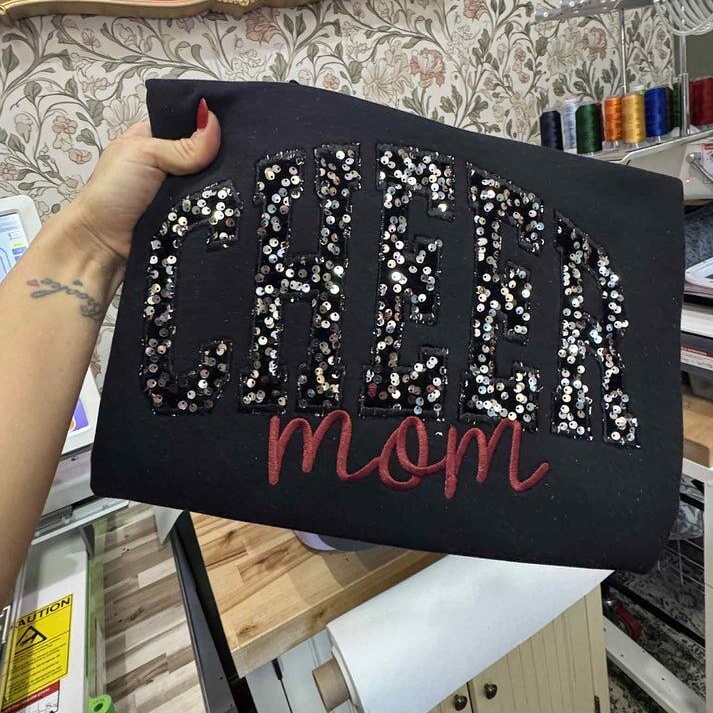 CHEER
mom
CAUTION